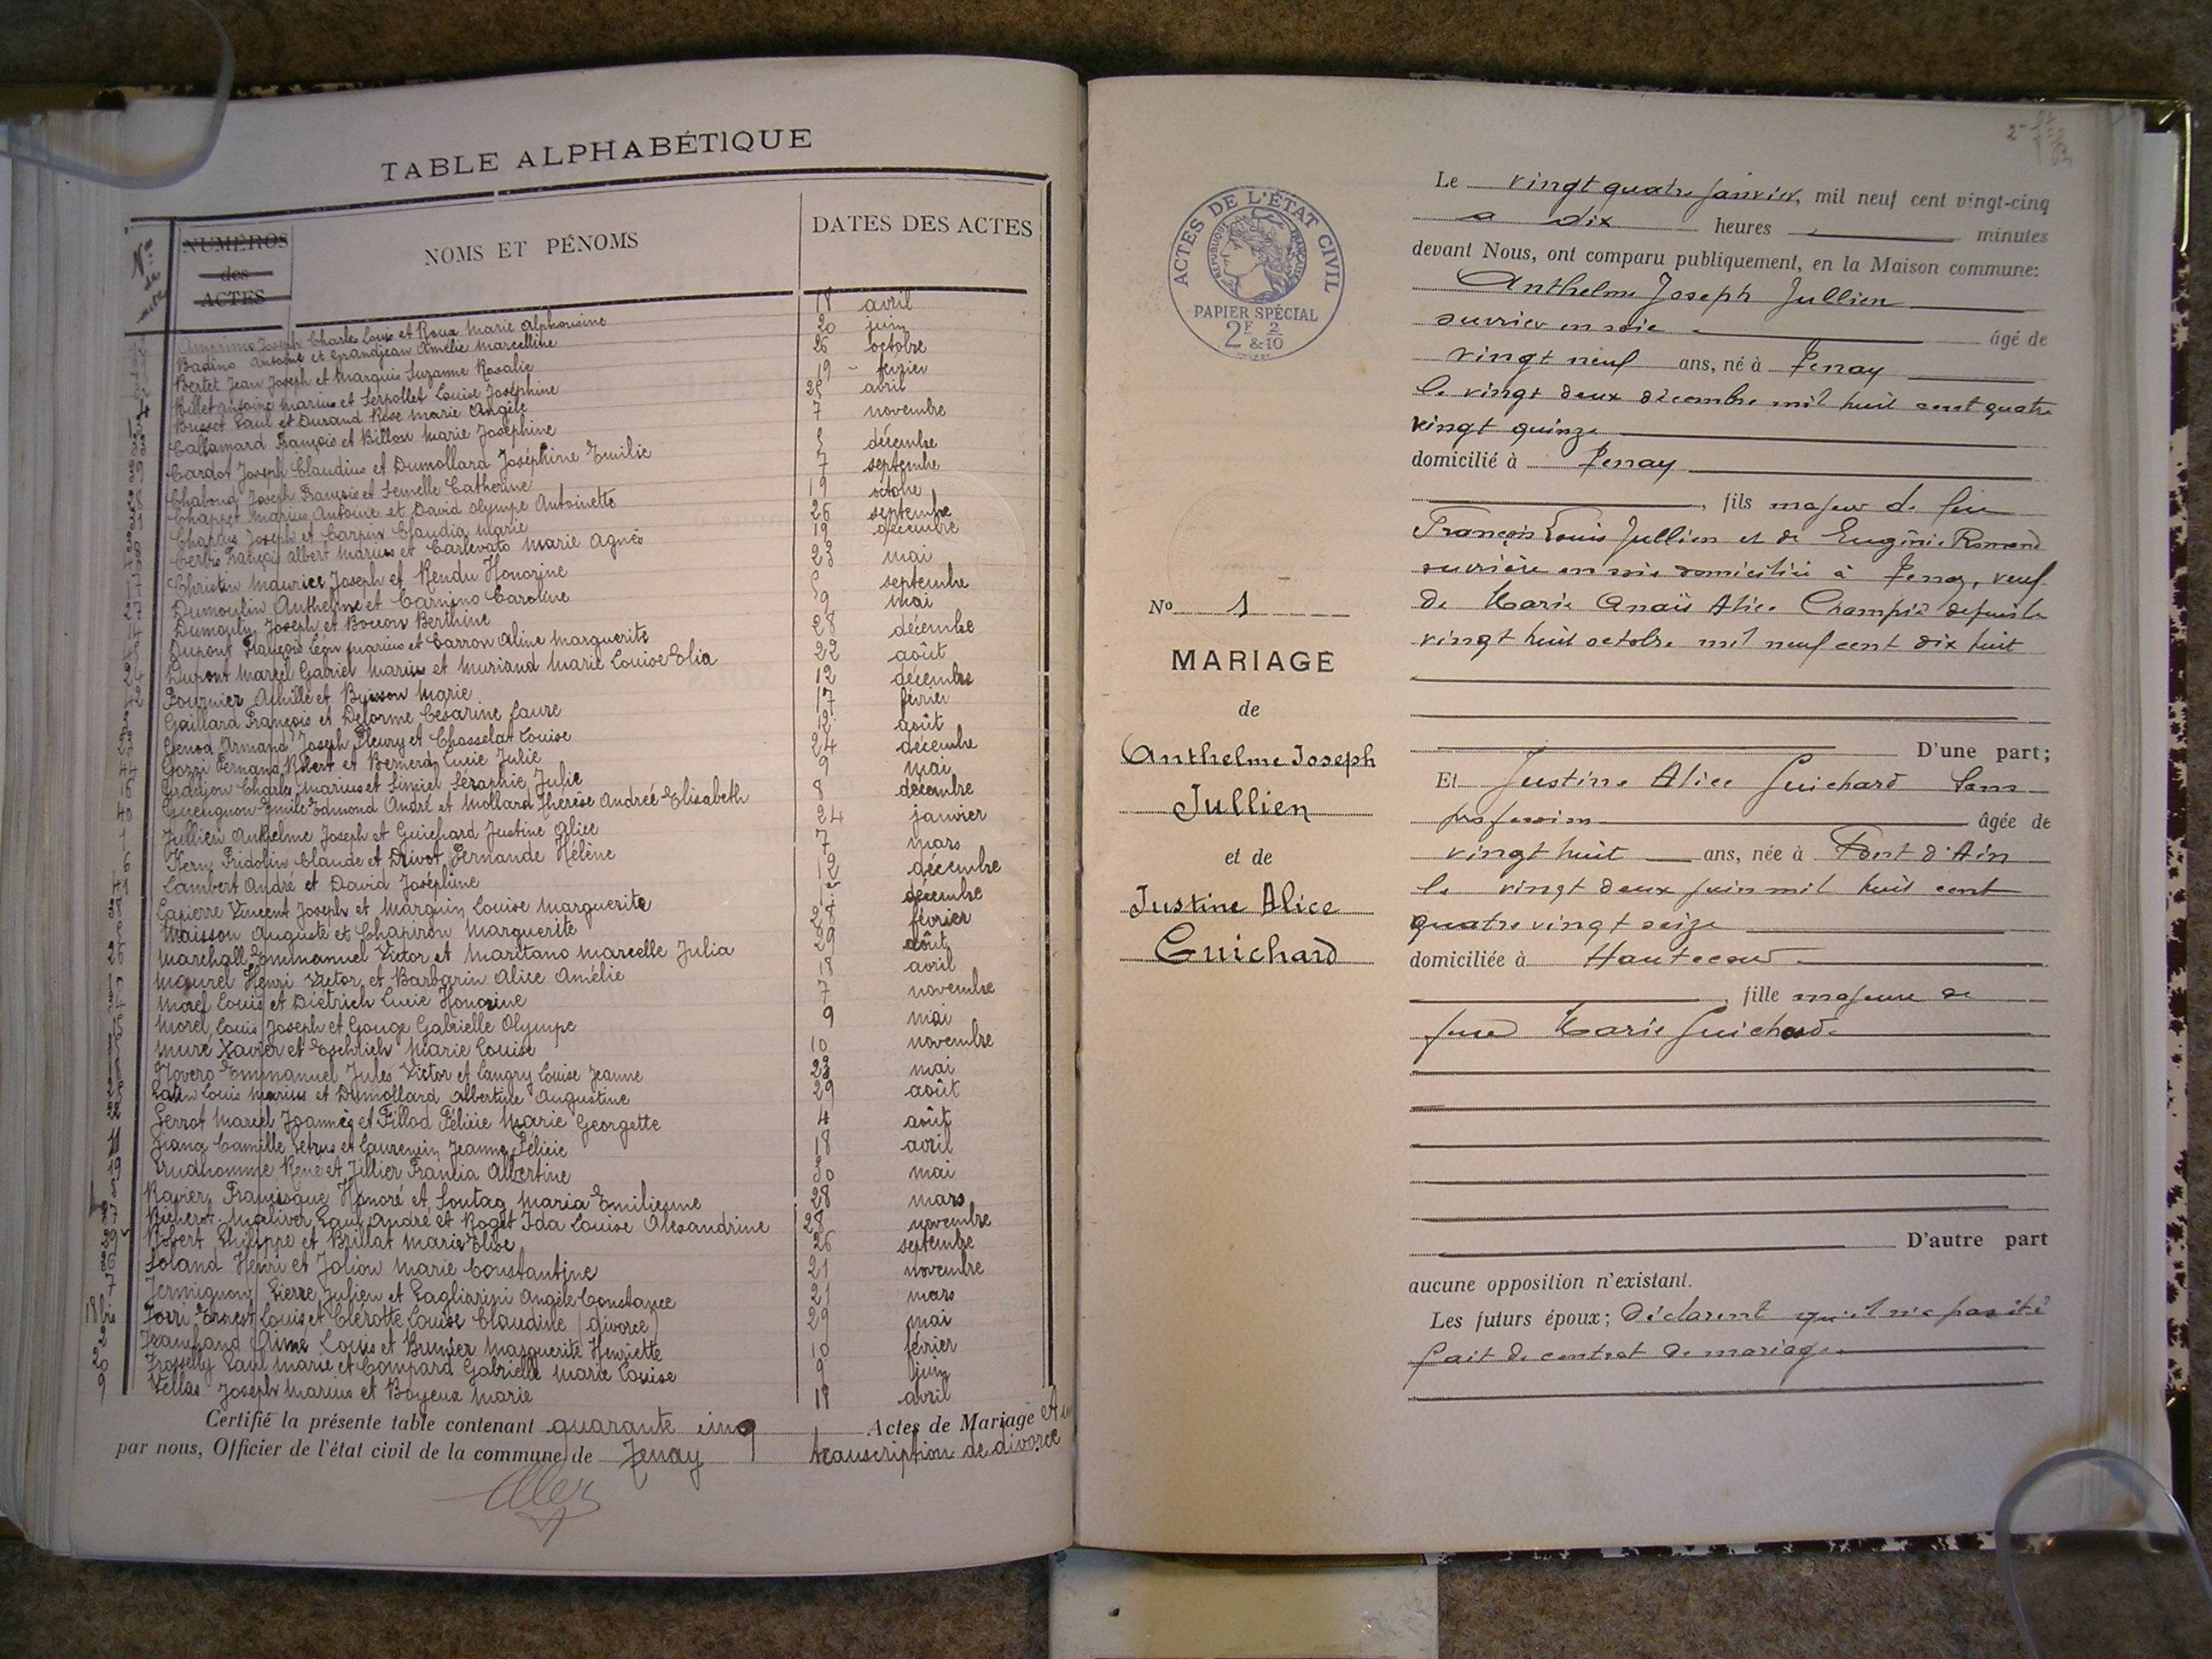 TABLE ALPHABÉTIQUE
NUMÉROS
des
ACTES
NOMS ET PÉNOMS
DATES DES ACTES
Joseph Charles Louis et Roux Marie Alphonsine 18 avril
Badino Antoine et Grandjean Amélie Marcelline 20 juin
Bertet Jean Joseph et Marquis Suzanne Rosalie 26 octobre
Billet Antoine Marius et Serpollet Louise Joséphine 19 février
Busset Paul et Durand Rose Marie Angèle 25 avril
Callamard François et Billon Marie Joséphine 7 novembre
Cardot Joseph Claudius et Dumollard Joséphine Emilie décembre
Chabond Joseph François et Semelle Catherine 7 septembre
Chappet Marius Antoine et David Olympe Antoinette 19 octobre
Joseph et Carpin Claudia Marie 26 septembre
François Albert Marius et Carlevato Marie Agnès 19 décembre
17 Christin Maurice Joseph et Rendu Honorine 23 mai
27 Dumoulin Anthelme et Carnino Caroline 5 septembre
14 Joseph et Boccon Berthine 9 mai
45 Dupont François Léon Marius et Carron Aline Marguerite 28 décembre
24 Dupont Marcel Gabriel Marius et Muriaud Marie Louise Elia 22 août
42 Fournier Achille et Buisson Marie 12 décembre
Gaillard François et Delorme Césarine Laure 17 février
Genod Armand Joseph Fleury et Chosselat Louise 12 août
44 Gozzi Fernand Robert et Bernerd Lucie Julie 24 décembre
16 Charles Marius et Simiel Séraphie Julie 9 mai
40 Guengnon Emile Edmond André et Mollard Thérèse Andrée Elisabeth 8 décembre
1 Jullien Anthelme Joseph et Guichard Justine Alice 24 janvier
6 Kern Fridolin Claude et Drivot Fernande Hélène 7 mars
41 Lambert André et David Joséphine 12 décembre
Lapierre Vincent Joseph et Marguin Louise Marguerite décembre
Maisson Auguste et Chapiron Marguerite 28 février
26 Marchall Emmanuel Victor et Maritano Marcelle Julia 29 août
Maurel Henri Victor et Barbarin Alice Amélie 18 avril
Morel Louis et Diétrich Lucie Honorine 7 novembre
15 Morel Louis Joseph et Gouge Gabrielle Olympe 9 mai
Mure Xavier et Eschrich Marie Louise 10 novembre
Novero Emmanuel Jules Victor et Langry Louise Jeanne 23 mai
Louis Marius et Dumollard Albertine Augustine 29 août
Perrot Marcel Joannès et Fillod Félicie Marie Georgette 4 août
11 Piana Camille Petrus et Laurencin Jeanne Félicie 18 avril
19 Prudhomme René et Jillier Francia Albertine 30 mai
8 Ravier Francisque Honoré et Sontag Maria Emilienne 28 mars
37 Richerot Maliver Paul André et Roget Ida Louise Alexandrine 28 novembre
29 Robert Philippe et Brillat Marie Elise 26 septembre
36 Soland Henri et Jolion Marie Constantine 21 novembre
7 Termignon Pierre Julien et Pagliarini Angèle Constance 21 mars
18bis Torri Ernest Louis et Clérotte Louise Claudine (divorce) 29 mai
2 Tranchand Aimé Louis et Brunier Marguerite Henriette 10 février
20 Trosselly Paul Marie et Compard Gabrielle Marie Louise 9 juin
9 Vellas Joseph Marius et Boyeux Marie 18 avril
Certifié la présente table contenant quarante cinq Actes de Mariage
par nous, Officier de l'état civil de la commune de Tenay transcription de divorce
ACTES DE L'ÉTAT CIVIL
RÉPUBLIQUE FRANÇAISE
PAPIER SPÉCIAL
2F 2/10
No 1
MARIAGE
de
Anthelme Joseph
Jullien
et de
Justine Alice
Guichard
Le vingt quatre janvier, mil neuf cent vingt-cinq
a dix heures minutes
devant Nous, ont comparu publiquement, en la Maison commune:
Anthelme Joseph Jullien
ouvrier en soie âgé de
vingt neuf ans, né à Tenay
le vingt deux décembre mil huit cent quatre
vingt quinze
domicilié à Tenay
, fils majeur de feu
François Louis Jullien et de Eugénie Romand
ouvrière en soie domicilié à Tenay, veuf
de Marie Anaïs Alice Champié depuis le
vingt huit octobre mil neuf cent dix huit
D'une part;
Et Justine Alice Guichard sans
profession âgée de
vingt huit ans, née à Pont d'Ain
le vingt deux juin mil huit cent
quatre vingt seize
domiciliée à Hautecour
, fille majeure de
feue Marie Guichard
D'autre part
aucune opposition n'existant.
Les futurs époux; déclarent qu'il n'a pas été
fait de contrat de mariage